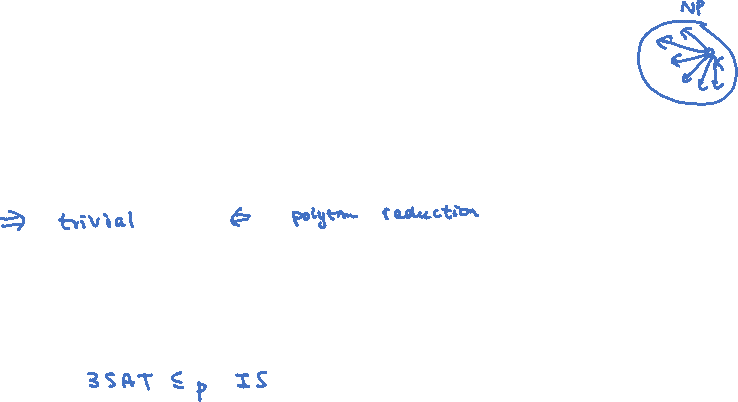 NP
⇒ trivial ⇐ polytm reduction
3SAT ≤p IS